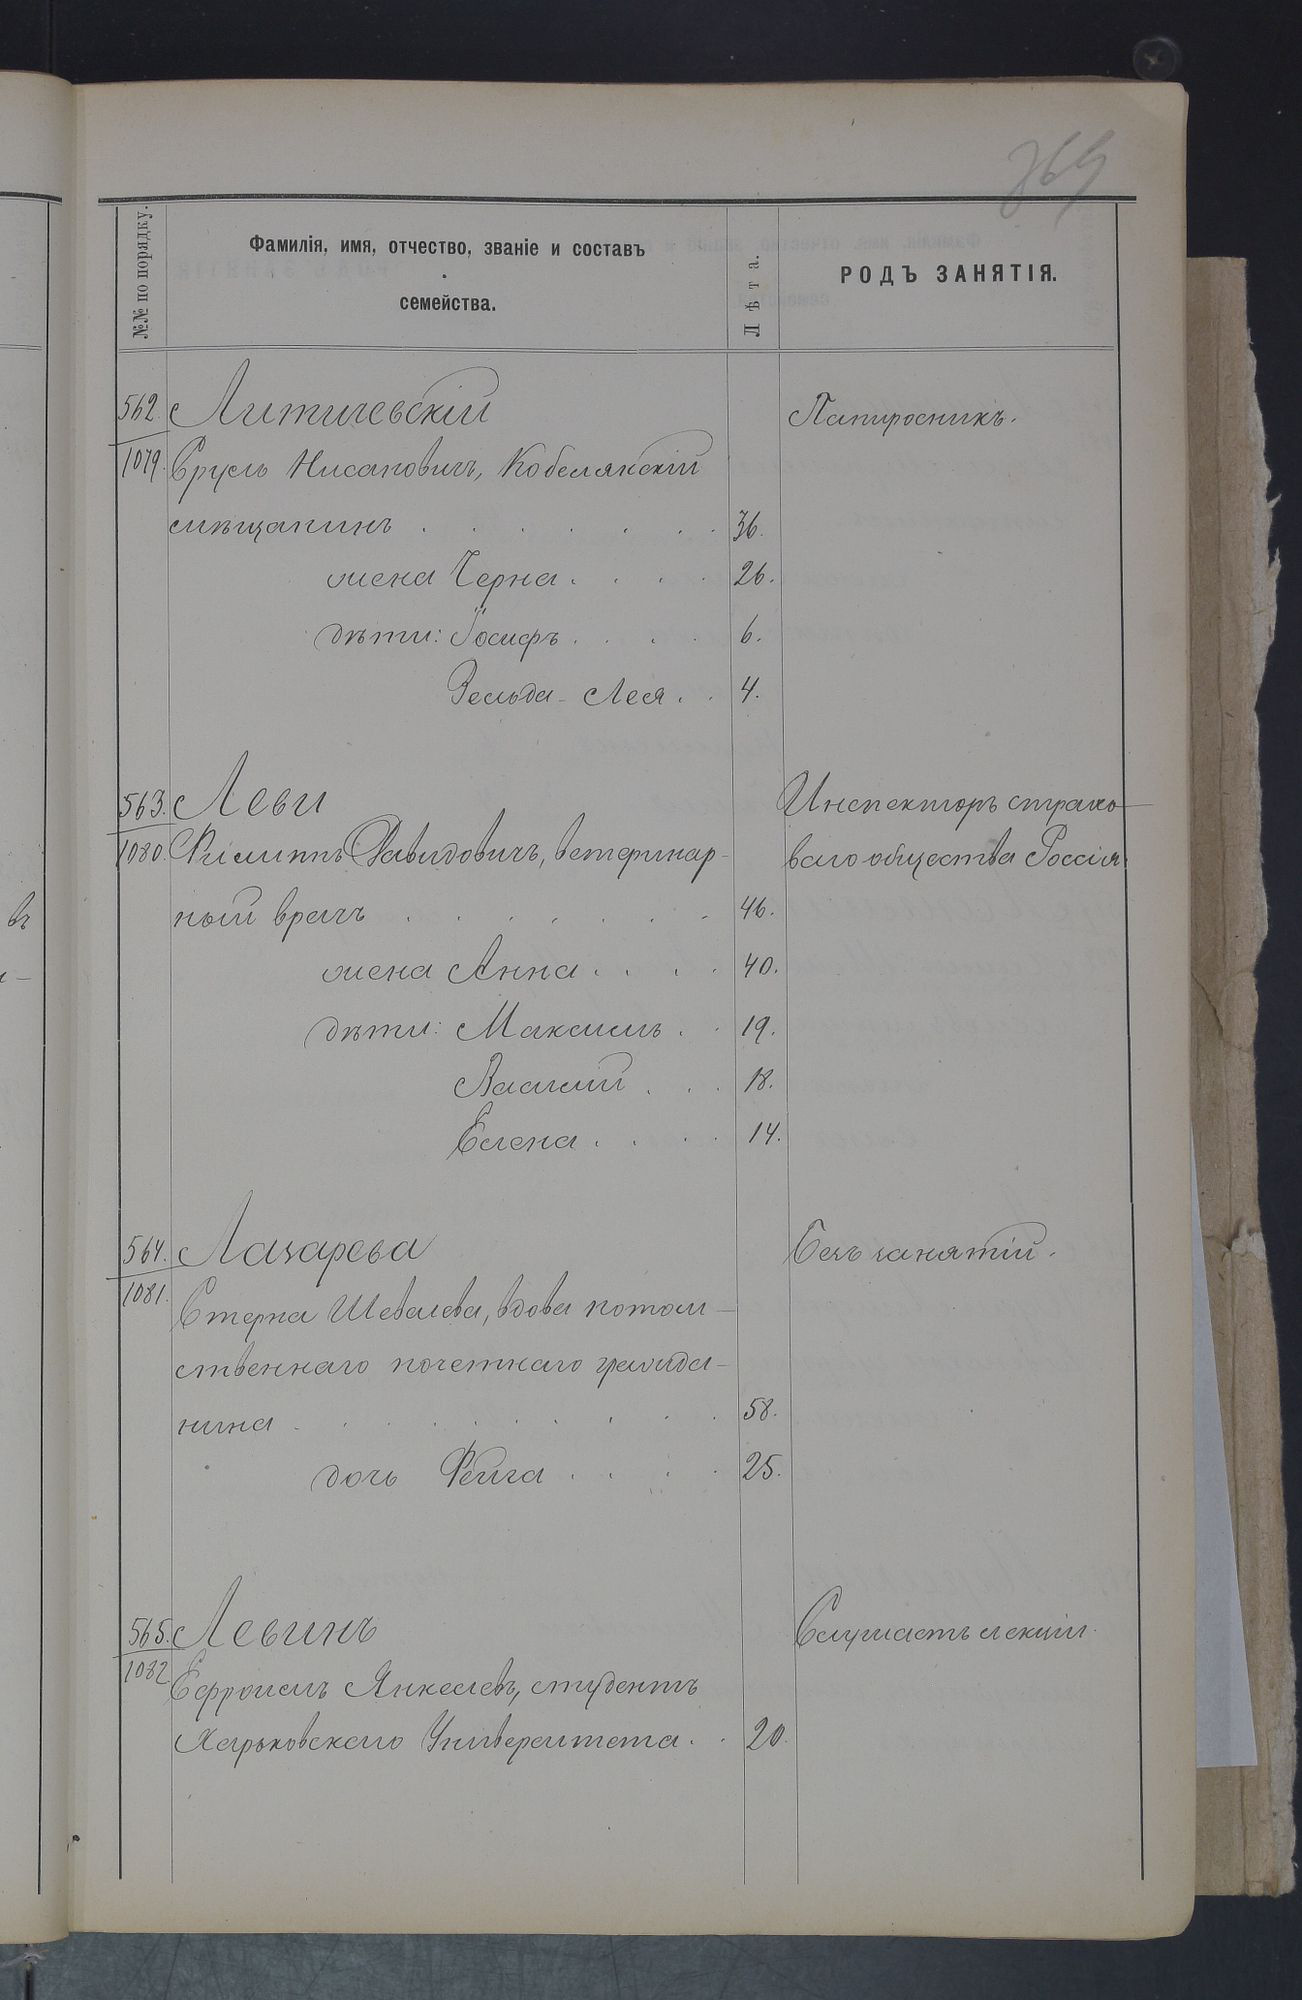 369
№№ по порядку.
Фамилія, имя, отчество, званіе и составъ
семейства.
Лѣта.
РОДЪ ЗАНЯТІЯ.
562. Литичевскій Папиросникъ.
1079. Сруль Нисановичъ, Кобелякскій
мѣщанинъ . . . . . . 36.
жена Черна . . . . 26.
дѣти: Іосифъ . . . . 6.
Зельда-Лея . . 4.
563. Леви Инспекторъ страхо-
1080. Филиппъ Давидовичъ, ветеринар- ваго общества Россія.
ный врачъ . . . . . . . 46.
жена Анна . . . . 40.
дѣти: Максимъ . . 19.
Василій . . . 18.
Елена . . . . 14.
564. Лазарева Безъ занятій.
1081. Стерна Шевелева, вдова потом-
ственнаго почетнаго гражда-
нина . . . . . . . . . 58.
дочь Фейга . . . . 25.
565. Левинъ Слушаетъ лекціи.
1082 Ефроимъ Янкелевъ, студентъ
Харьковскаго Университета . . 20.
въ